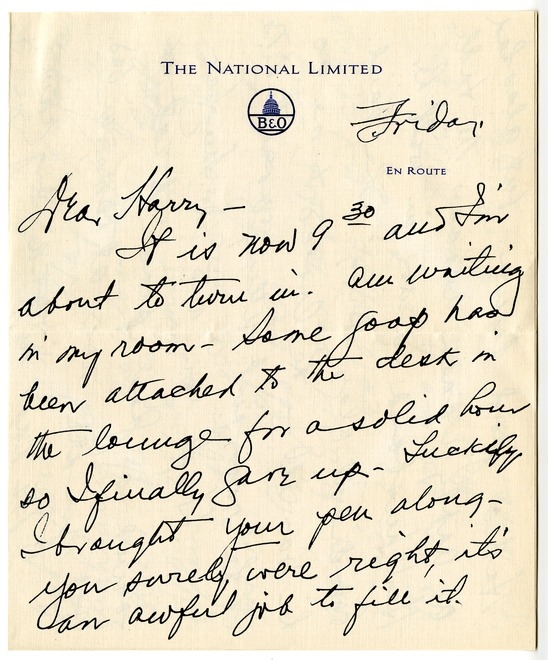 THE NATIONAL LIMITED
B&O
Friday,
EN ROUTE
Dear Harry –
It is now 9 30 and I'm
about to turn in. Am writing
in my room – Some goop has
been attached to the desk in
the lounge for a solid hour
so I finally gave up – Luckily
I brought your pen along –
you surely were right, it's
an awful job to fill it.